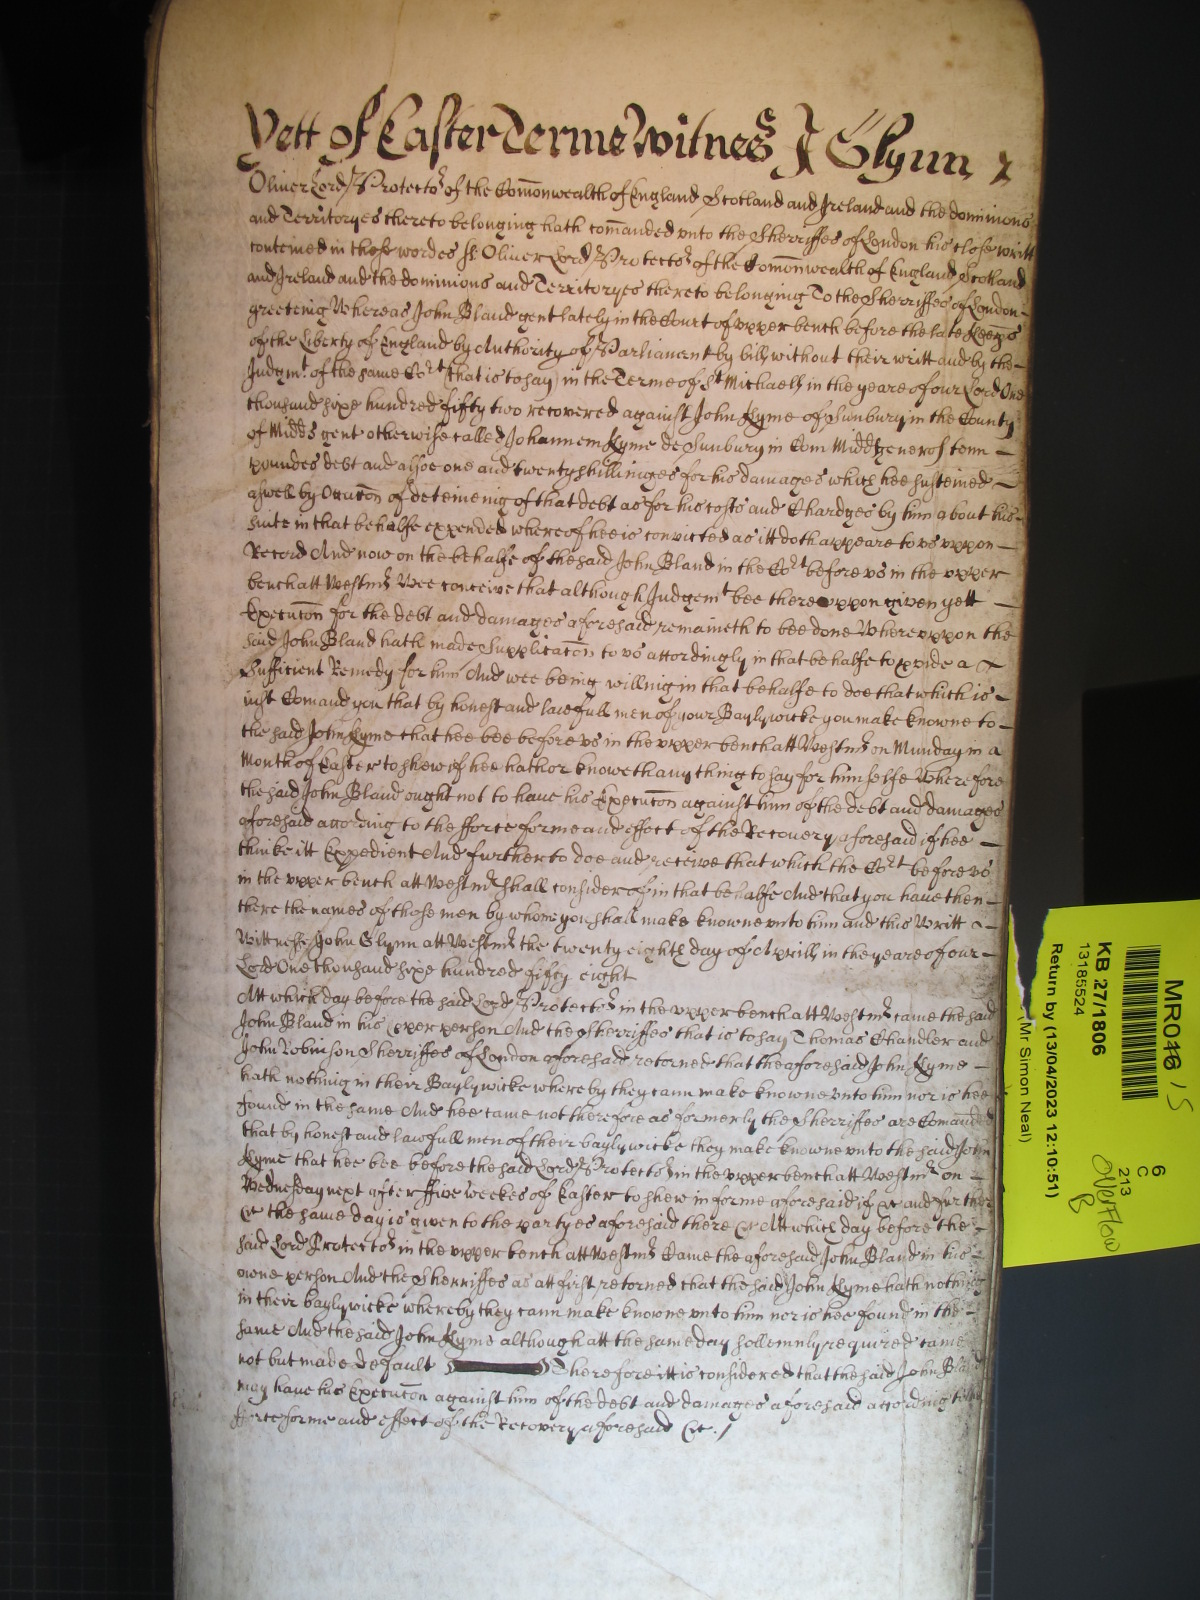 Yett of Easter Terme Witnes J Glynn
Oliver Lord Protector of the Comonwealth of England Scotland and Ireland and the dominions
and Territoryes thereto belonging hath comanded vnto the Sherriffes of London his close writt
conteined in these wordes ss Oliver Lord Protector of the Comonwealth of England Scotland
and Ireland and the dominions and Territoryes thereto belonging To the Sherriffes of London
greeteing Whereas John Bland gent lately in the Court of vpper bench before the late Keeps
of the Liberty of England by Authority of Parliament by bill without their writt and by the
Judgmt of the same Cort (that is to say) in the Terme of St Michaell in the yeare of our Lord One
thousand sixe hundred fifty two recovered against John Kyme of Sunbury in the County
of Midds gent otherwise called Johannem Kyme de Sunbury in Com Midd generos tenn
poundes debt and alsoe one and twenty shillinges for his damages which hee susteined
aswell by Occacon of deteineing of that debt as for his costs and Chardges by him about his
suite in that behalfe expended whereof hee is convicted as itt doth appeare to vs vppon
Record And now on the behalfe of the said John Bland in the Cort before vs in the vpper
bench att Westmr Wee conceive that although Judgemt bee therevppon given yett
Execucon for the debt and damages aforesaid remaineth to bee done Wherevppon the
said John Bland hath made Supplicacon to vs accordingly in that behalfe to pvide a
Sufficient Remedy for him And wee being willing in that behalfe to doe that which is
iust Comand you that by honest and lawfull men of your Baylywicke you make knowne to
the said John Kyme that hee bee before vs in the vpper bench att Westmr on Munday in a
Month of Easter to shew if hee hath or knoweth any thing to say for himselfe Wherefore
the said John Bland ought not to have his Execucon against him of the debt and damages
aforesaid according to the fforce forme and effect of the Recovery aforesaid if hee
thinke itt Expedient And further to doe and receive that which the Cort before vs
in the vpper bench att Westmr shall consider of in that behalfe And that you have then
there the names of those men by whom you shall make knowne vnto him and this Writt
Wittnesse John Glynn att Westmr the twenty eighth day of Aprill in the yeare of our
Lord One thousand sixe hundred fifty eight
Att which day before the said Lord Protector in the vpper bench att Westmr came the said
John Bland in his pper person And the Sherriffes that is to say Thomas Chandler and
John Robinson Sherriffes of London aforesaid retorned that the aforesaid John Kyme
hath nothing in their Baylywicke whereby they cann make knowne vnto him nor is hee
found in the same And hee came not therefore as formerly the Sherriffes are Comanded
that by honest and lawfull men of their baylywicke they make knowne vnto the said John
Kyme that hee bee before the said Lord Protector in the vpper bench att Westmr on
Wednesday next after ffive weekes of Easter to shew in forme aforesaid if &c and further
&c the same day is given to the partyes aforesaid there &c Att which day before the
said Lord Protector in the vpper bench att Westmr Came the aforesaid John Bland in his
owne person And the Sherriffes as att first retorned that the said John Kyme hath nothing
in their baylywicke whereby they cann make knowne vnto him nor is hee found in the
same And the said John Kyme although att the same day sollemnly required came
not but made default Therefore itt is considered that the said John Bland
may have his Execucon against him of the debt and damages aforesaid according to the
fforce forme and effect of the Recovery aforesaid &c.
MR046 / 15
KB 27/1806
13185524
Return by (13/04/2023 12:10:51)
(Mr Simon Neal)
6
C
213
overflow
B